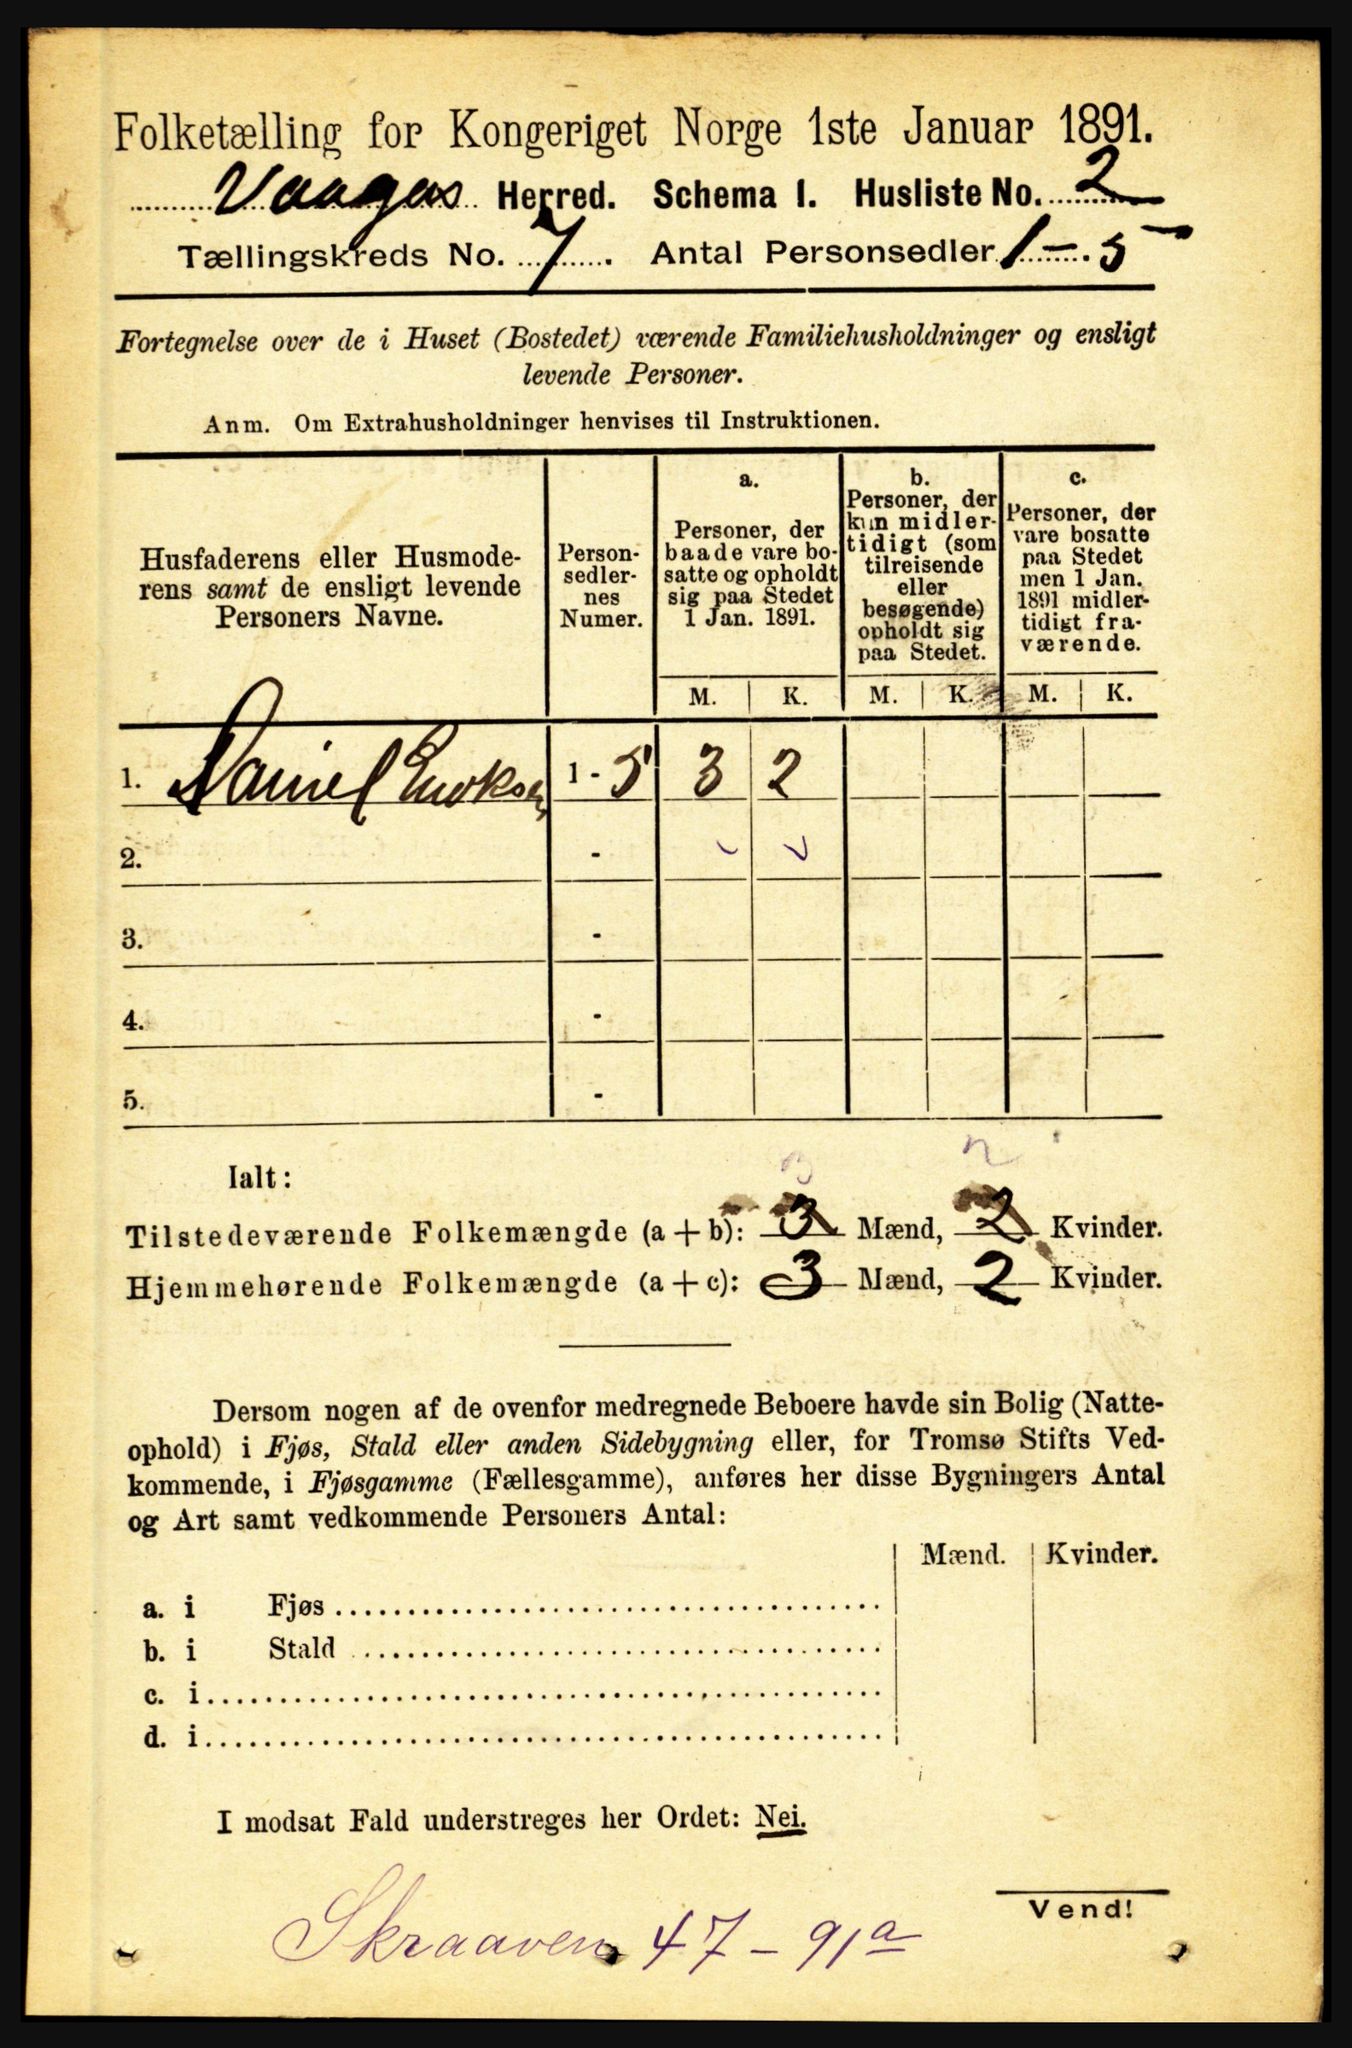 Folketælling for Kongeriget Norge 1ste Januar 1891.
Vaagas Herred. Schema I. Husliste No. 2
Tællingskreds No. 7. Antal Personsedler 1 - 5
Fortegnelse over de i Huset (Bostedet) værende Familiehusholdninger og ensligt
levende Personer.
Anm. Om Extrahusholdninger henvises til Instruktionen.
Husfaderens eller Husmode-
rens samt de ensligt levende
Personers Navne.
Person-
sedler-
nes
Numer.
a.
Personer, der
baade vare bo-
satte og opholdt
sig paa Stedet
1 Jan. 1891.
b.
Personer, der
kun midler-
tidigt (som
tilreisende
eller
besøgende)
opholdt sig
paa Stedet.
c.
Personer, der
vare bosatte
paa Stedet
men 1 Jan.
1891 midler-
tidigt fra-
værende.
M. K. M. K. M. K.
1. Daniel Enoksen 1 - 5 3 2
2. -
3. -
4. -
5. -
3 2
Ialt:
Tilstedeværende Folkemængde (a + b): 3 Mænd, 2 Kvinder.
Hjemmehørende Folkemængde (a + c): 3 Mænd, 2 Kvinder.
Dersom nogen af de ovenfor medregnede Beboere havde sin Bolig (Natte-
ophold) i Fjøs, Stald eller anden Sidebygning eller, for Tromsø Stifts Ved-
kommende, i Fjøsgamme (Fællesgamme), anføres her disse Bygningers Antal
og Art samt vedkommende Personers Antal:
Mænd. Kvinder.
a. i Fjøs
b. i Stald
c. i
d. i
I modsat Fald understreges her Ordet: Nei.
Vend!
Skraaven 47 - 91a